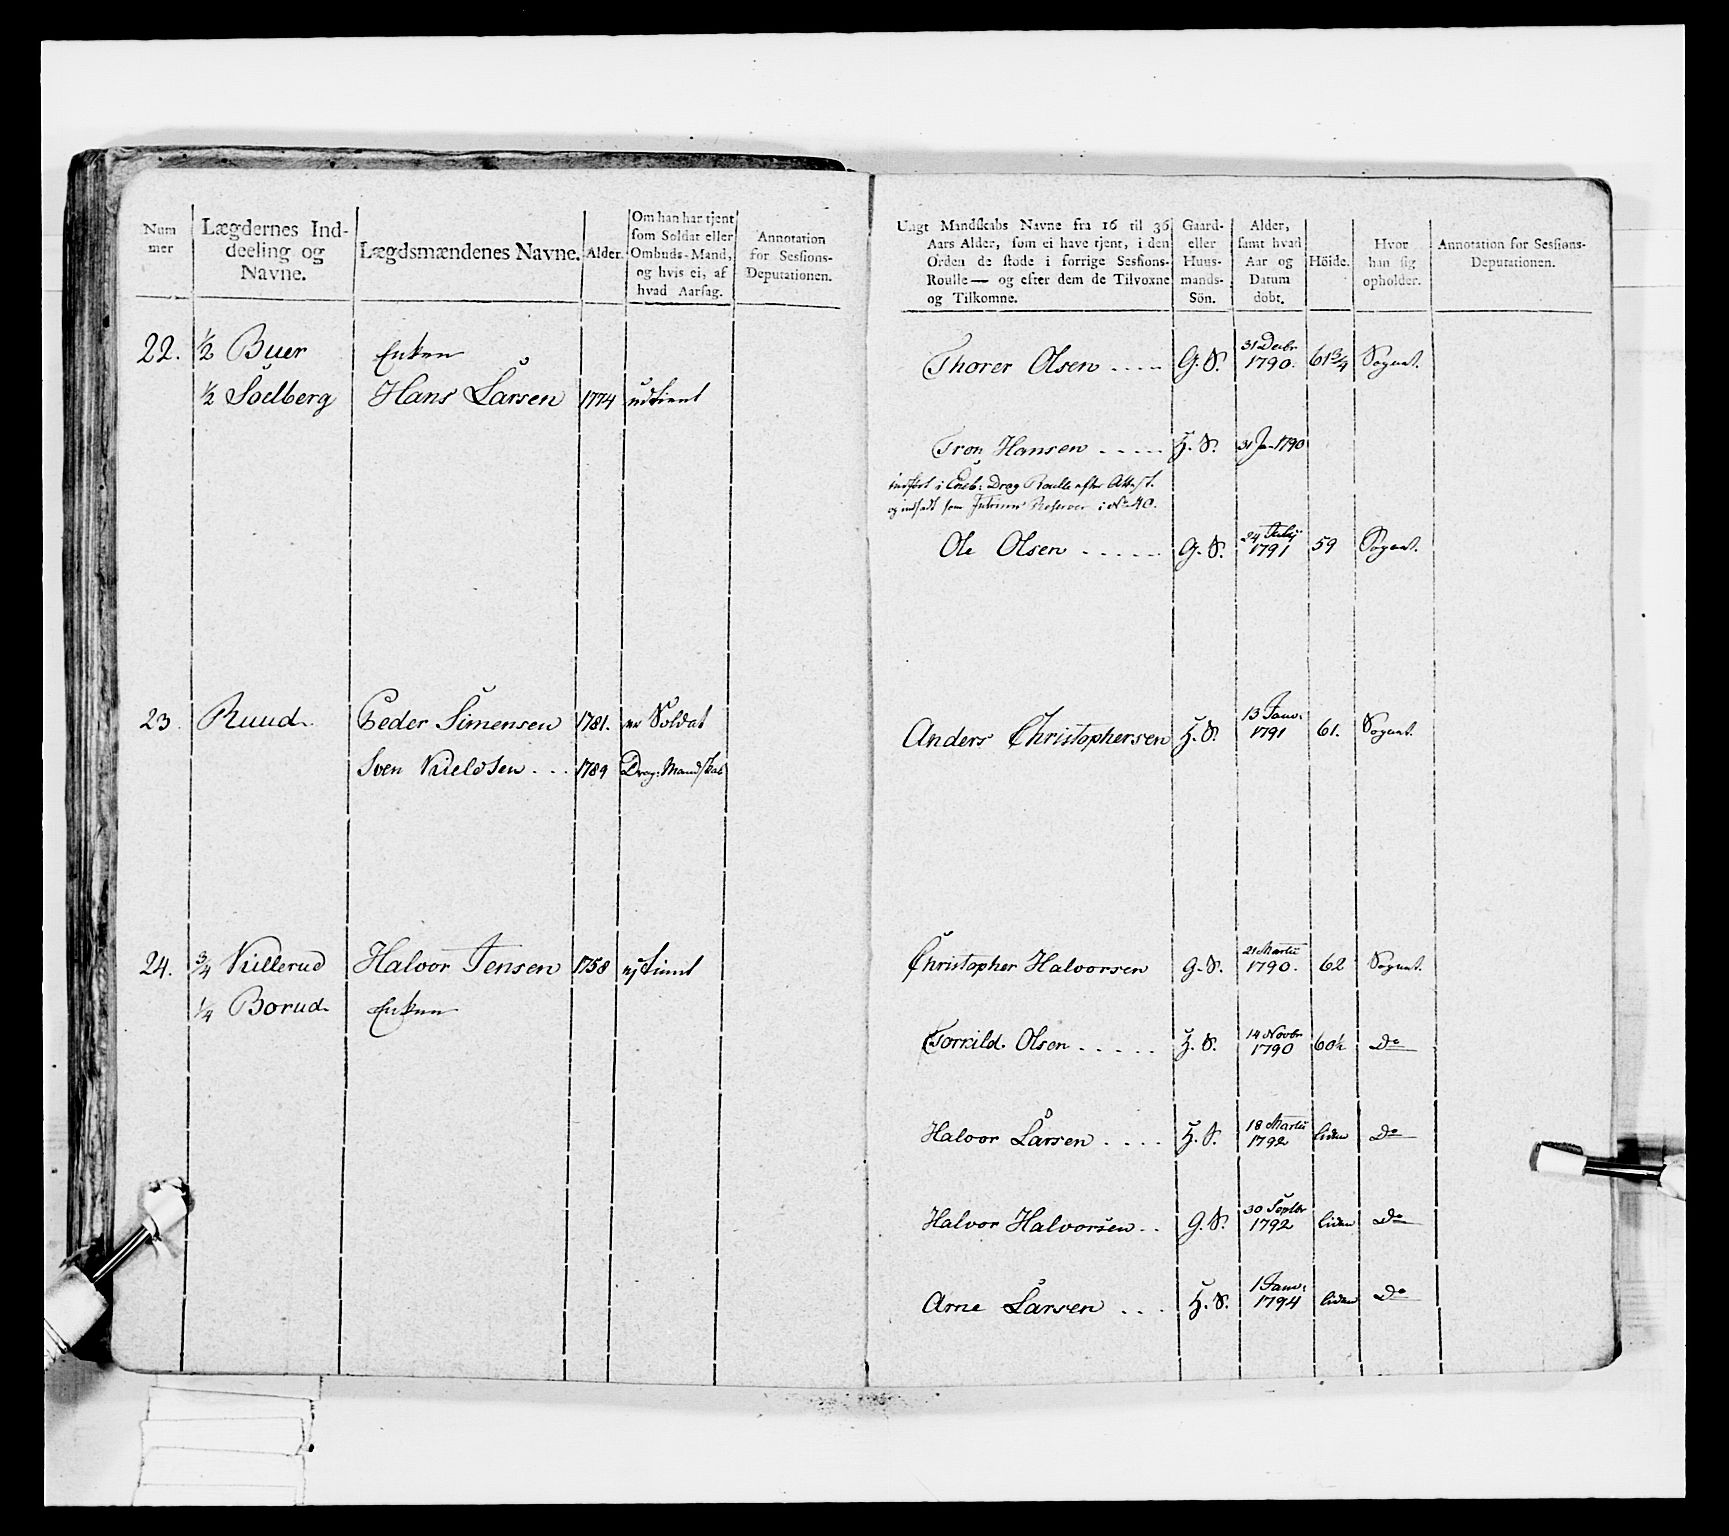 Num
mer
Lægdernes Ind-
deeling og
Navne.
Lægdsmændenes Navne.
Alder.
Om han har tjent
som Soldat eller
Ombuds-Mand,
og hvis ei, af
hvad Aarsag.
Annotation
for Sessions-
Deputationen.
22. ½ Buer Enken
½ Soelberg Hans Larsen 1774 udtient
23. Ruud Peder Simensen 1781. er Soldat
Sven 1789 Drag: Mandskab
24. ¾ Killerud Halvor Jensen 1758 ej tient
¼ Borud Enken
Ungt Mandskabs Navne fra 16 til 36
Aars Alder, som ei have tjent, i den
Orden de stode i forrige Sessions-
Roulle — og efter dem de Tilvoxne
og Tilkomne.
Gaard-
eller
Huus-
mands-
Sön.
Alder,
samt hvad
Aar og
Datum
dobt.
Höide.
Hvor
han sig
opholder.
Annotation for Sessions-
Deputationen.
Thorer Olsen ..... G. S. 31 Decbr 1790. 61¾ Sognet.
Tron Hansen ..... H. S. 31 Jan 1790
indført i Drag Roulle efter Attest.
og indsadt som Reserver i No 40.
Ole Olsen ..... G. S. 24 July 1791 59 Sognet.
Anders Christophersen H. S. 13 Janv: 1791 61. Sognet.
Christopher Halvorsen G. S. 21 Martii 1790. 62 Sognet.
Torkild Olsen ..... H. S. 14 Novbr 1790 60½ Do
Halvor Larsen .... H. S. 18 Martii 1792 liden Do
Halvor Halvorsen .. G. S. 30 Septbr 1792 liden Do
Arne Larsen ... H. S. 1 Janv: 1794 liden Do